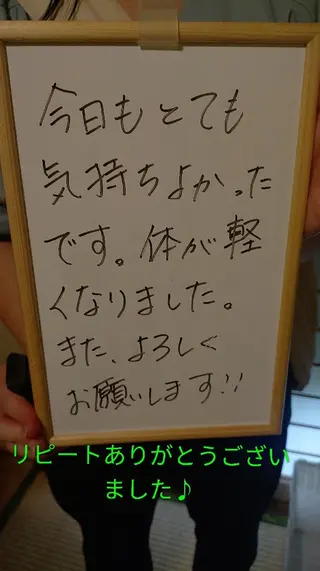 今日もとても
気持ちよかった
です。体が軽
くなりました。
また、よろしく
お願いします!!
リピートありがとうござい
ました♪